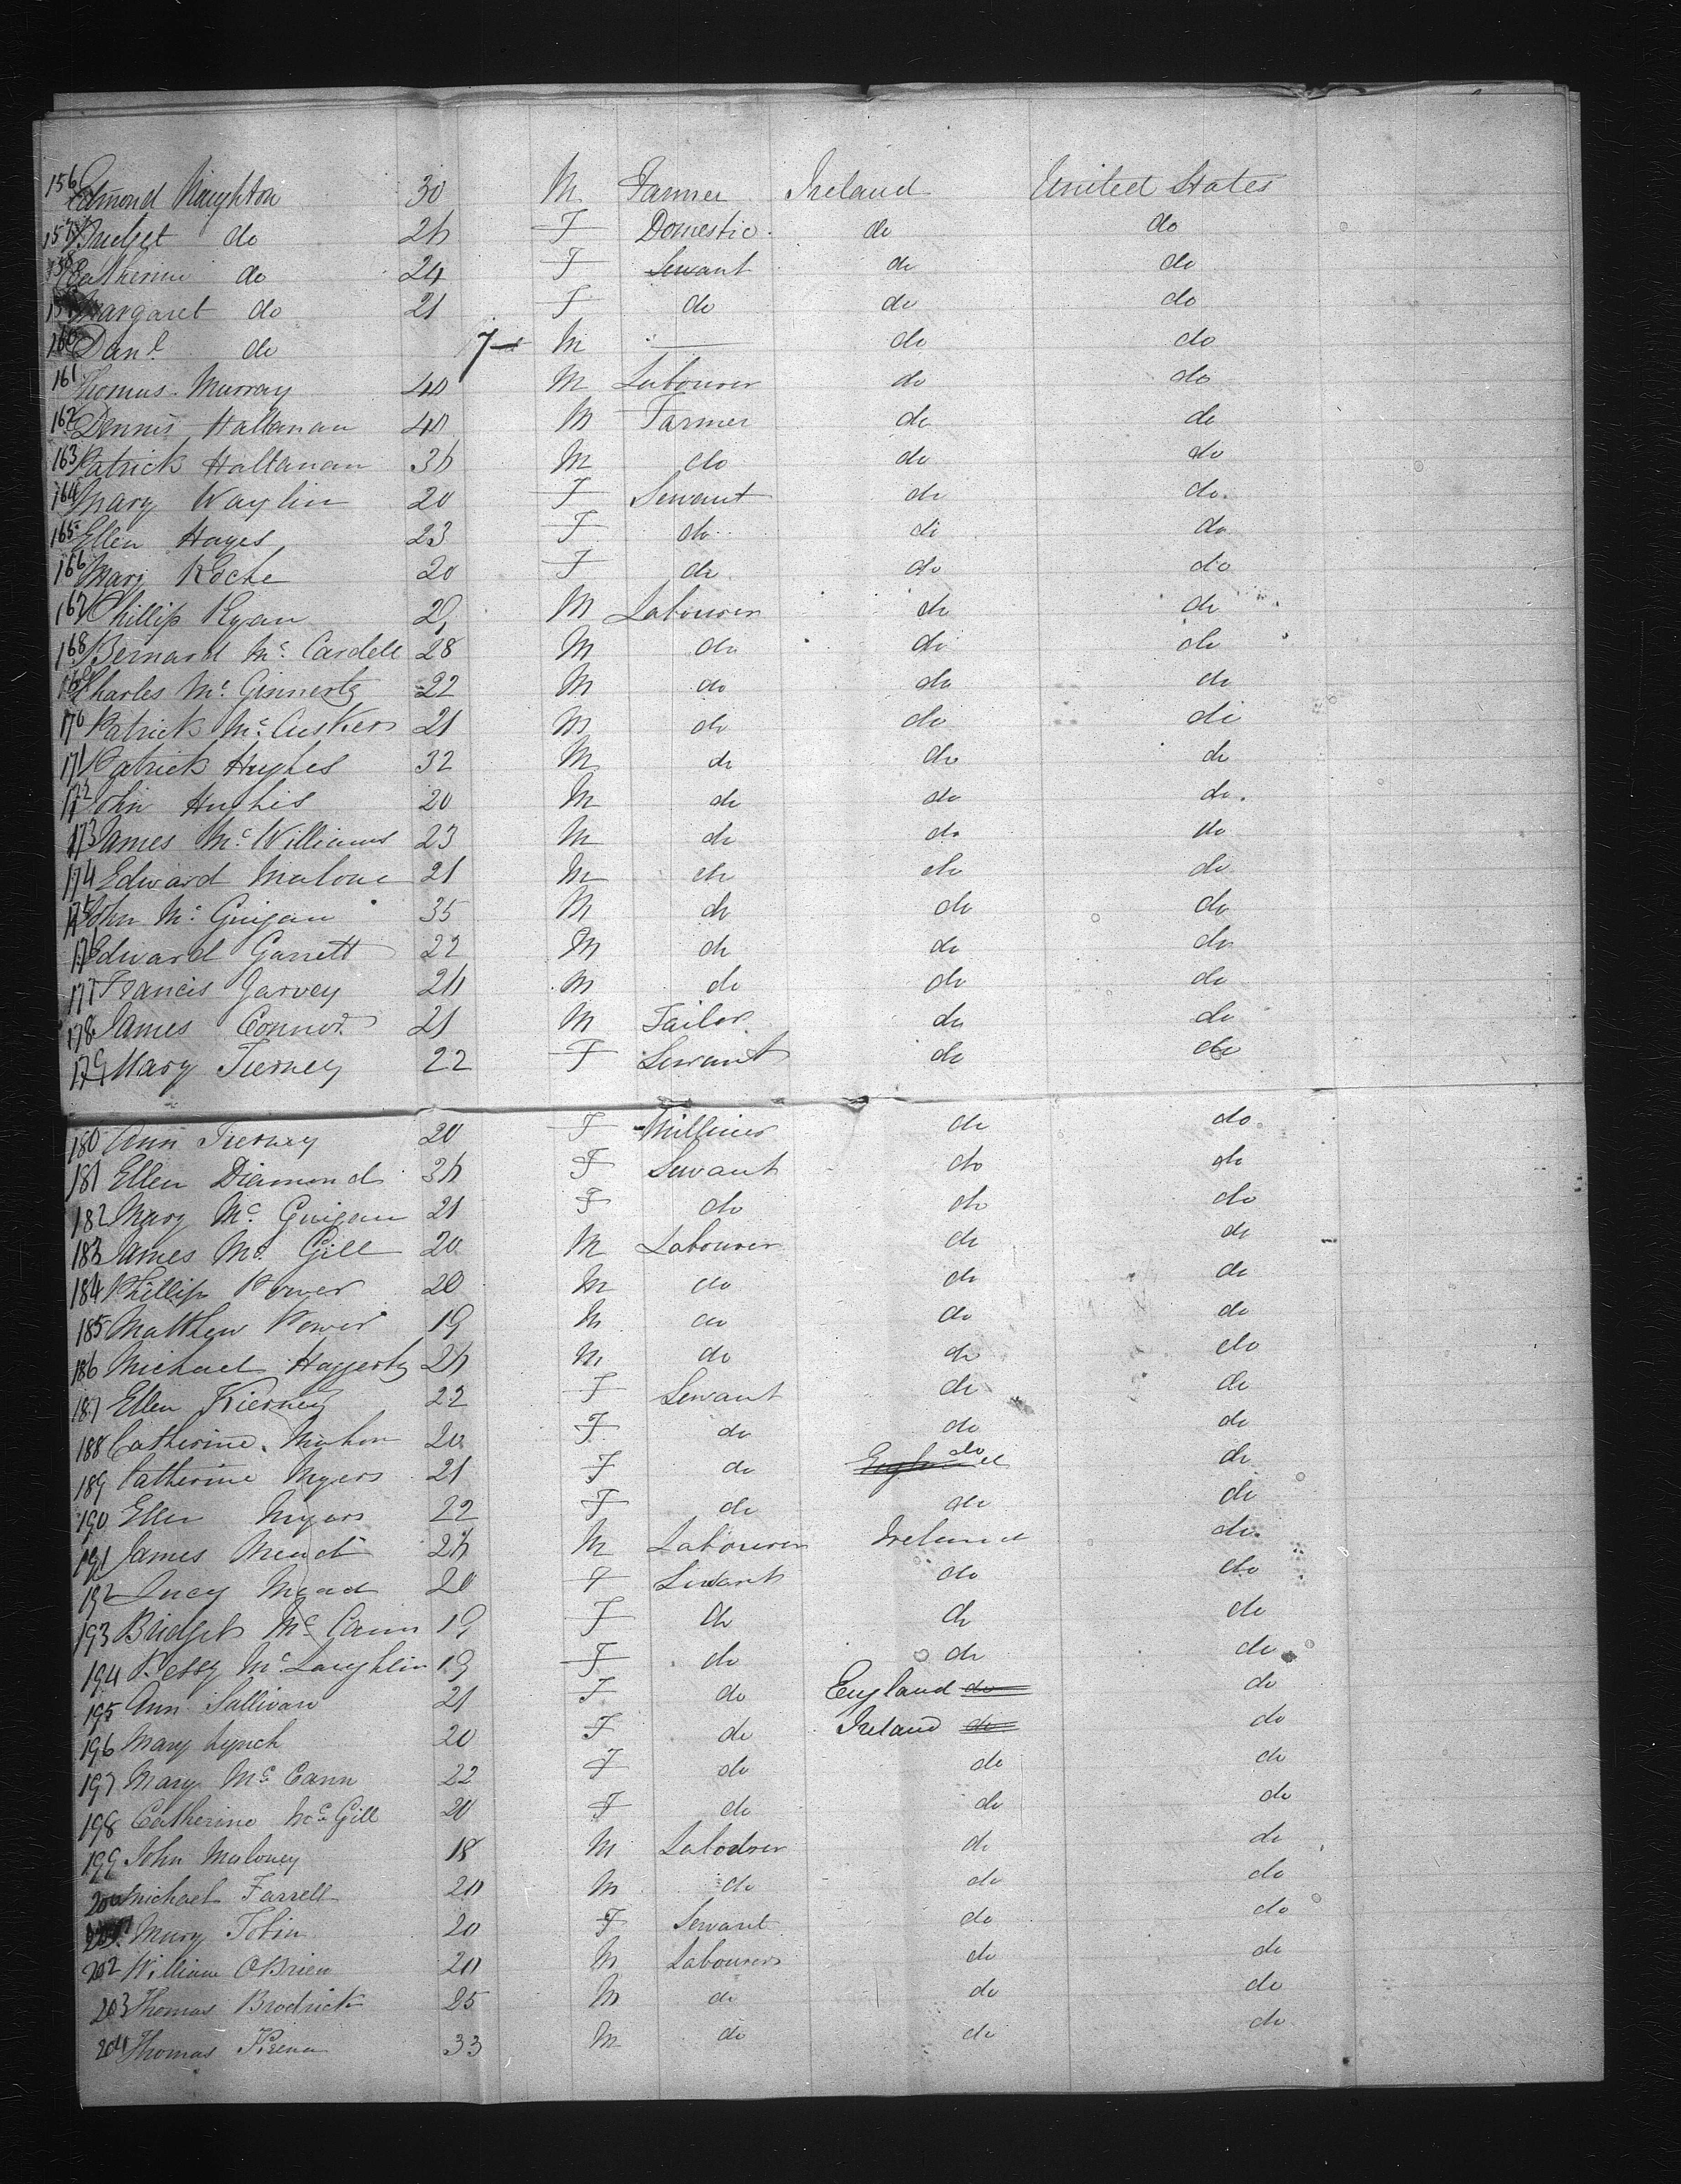 156 Edmond Naughton 30 M Farmer Ireland United States
157 Bridget do 26 F Domestic do do
158 Catherine do 24 F Servant do do
159 Margaret do 21 F do do do
160 Danl do 7 M — do do
161 Thomas Murray 40 M Labourer do do
162 Dennis Hallanan 40 M Farmer do do
163 Patrick Hallanan 36 M do do do
164 Mary 20 F Servant do do
165 Ellen Hayes 23 F do do do
166 Mary Roche 20 F do do do
167 Phillip Ryan M Labourer do do
168 Bernard Mc Cardell 28 M do do do
169 Charles Mc Ginnerty 22 M do do do
170 Patrick Mc Cusker 21 M do do do
171 Patrick Hughes 32 M do do do
172 John Hughes 20 M do do do
173 James Mc Williams 23 M do do do
174 Edward Malone 21 M do do do
175 John Mc Guigan 35 M do do do
176 Edward Garrett 22 M do do do
177 Francis Garvey 26 M do do do
178 James Connor 21 M Tailor do do
179 Mary Tierney 22 F Servant do do
180 Ann Tierney 20 F Milliner do do
181 Ellen Diamond 36 F Servant do do
182 Mary Mc Guigan 21 F do do do
183 James Mc Gill 20 M Labourer do do
184 Phillip Power 20 M do do do
185 Matthew Power 19 M do do do
186 Michael Haggerty 26 M do do do
187 Ellen Kierney 22 F Servant do do
188 Catherine Mahon 20 F do do do
189 Catherine Myers 21 F do England do do
190 Ellen Myers 22 F do do do
191 James Mead 26 M Labourer Ireland do
192 Lucy Mead 20 F Servant do do
193 Bridget Mc Cann 19 F do do do
194 Mc Laughlin 19 F do do do
195 Ann Sullivan 21 F do England do do
196 Mary Lynch 20 F do Ireland do do
197 Mary Mc Cann 22 F do do do
198 Catherine Mc Gill 20 F do do do
199 John Maloney 18 M Labourer do do
200 Michael Farrell 20 M do do do
201 Mary Tobin 20 F Servant do do
202 William OBrien 20 M Labourer do do
203 Thomas Brodrick 25 M do do do
204 Thomas 33 M do do do